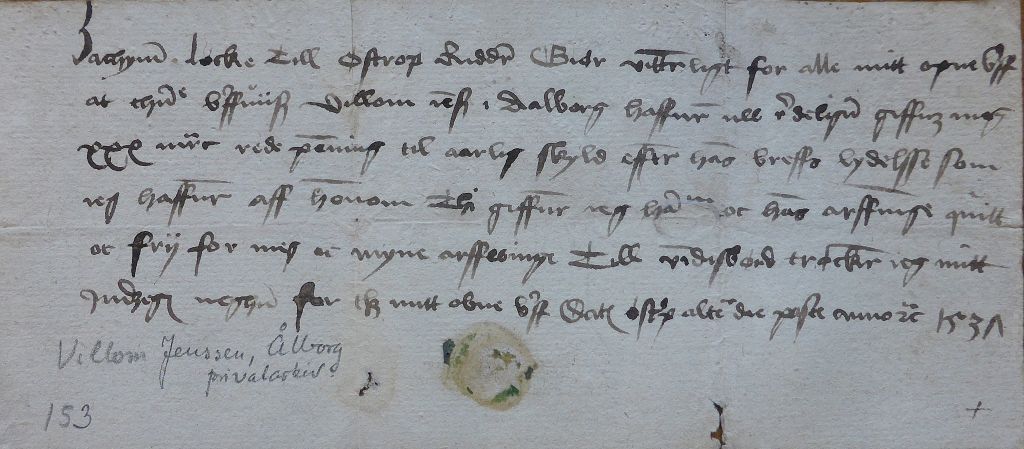 Jachym Locke Till Ostrop Ridder Giør vitterligt for alle mitt opne breff
at Villom Jenss i Aalborg haffuer giffuet meg
xxx marc rede penning til aarlig skyld effter hans breffs lydelsse som
jeg haffuer aff honom Thi giffuer jeg hanum oc hans arffuinge quitt
oc frij for meg oc myne arffuinge Till vidisbørd trøcker jeg mitt
Indzegl neghen for thz mitt obne breff Datum Ostrop altera die pasce anno etc 1531
Villom Jenssen, Ålborg
privatarkiv.
153
+